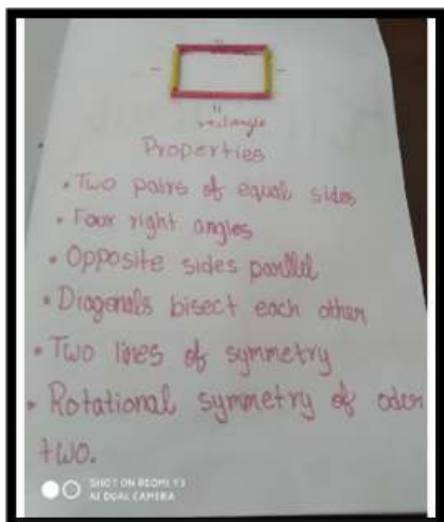 rectangle
Properties
• Two pairs of equal sides
• Four right angles
• Opposite sides parllel
• Diagonals bisect each other
• Two lines of symmetry
• Rotational symmetry of oder
two.
SHOT ON REDMI Y3
AI DUAL CAMERA